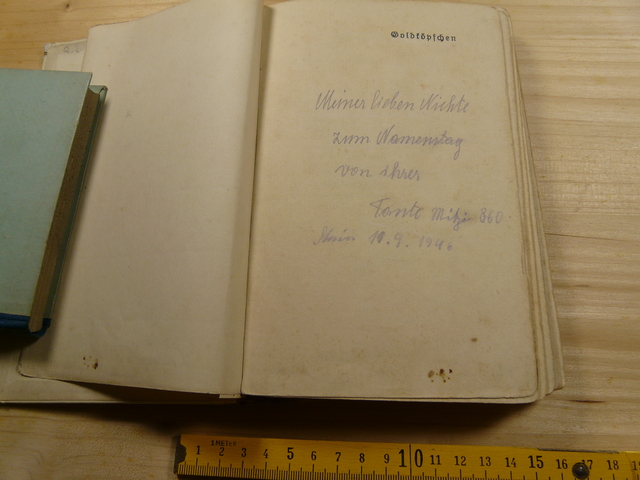 Goldköpfchen
Meiner lieben Nichte
zum Namenstag
von ihrer
Tante Mitzi 860
10.9. 1946
1 METER
1 2 3 4 5 6 7 8 9 10 11 12 13 14 15 16 17 18 19